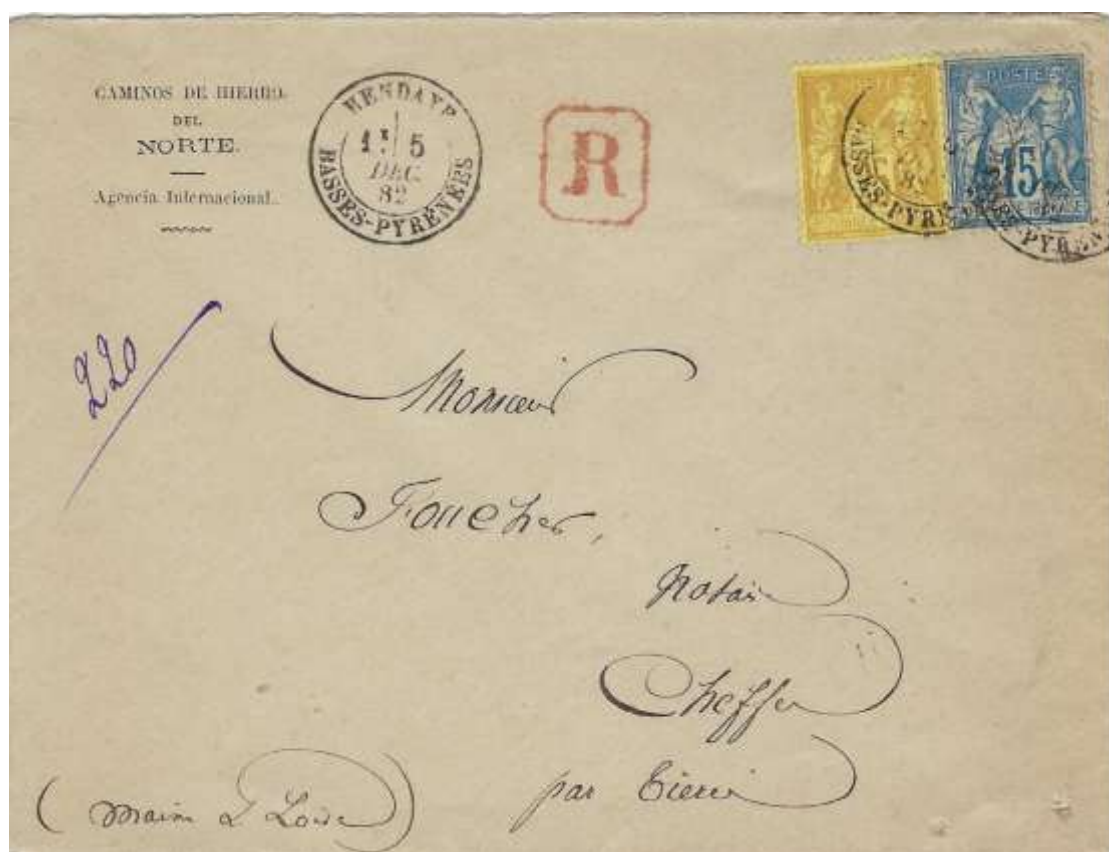 CAMINOS DE HIERRO
DEL
NORTE.
Agencia Internacional.
HENDAYE
1E 5
DEC
82
BASSES-PYRÉNÉES
R
POSTE
15
BASSES-PYRÉN
82
220
Monsieur
Foucher,
Notaire
Cheffes
par Tiercé
(Maine & Loire)